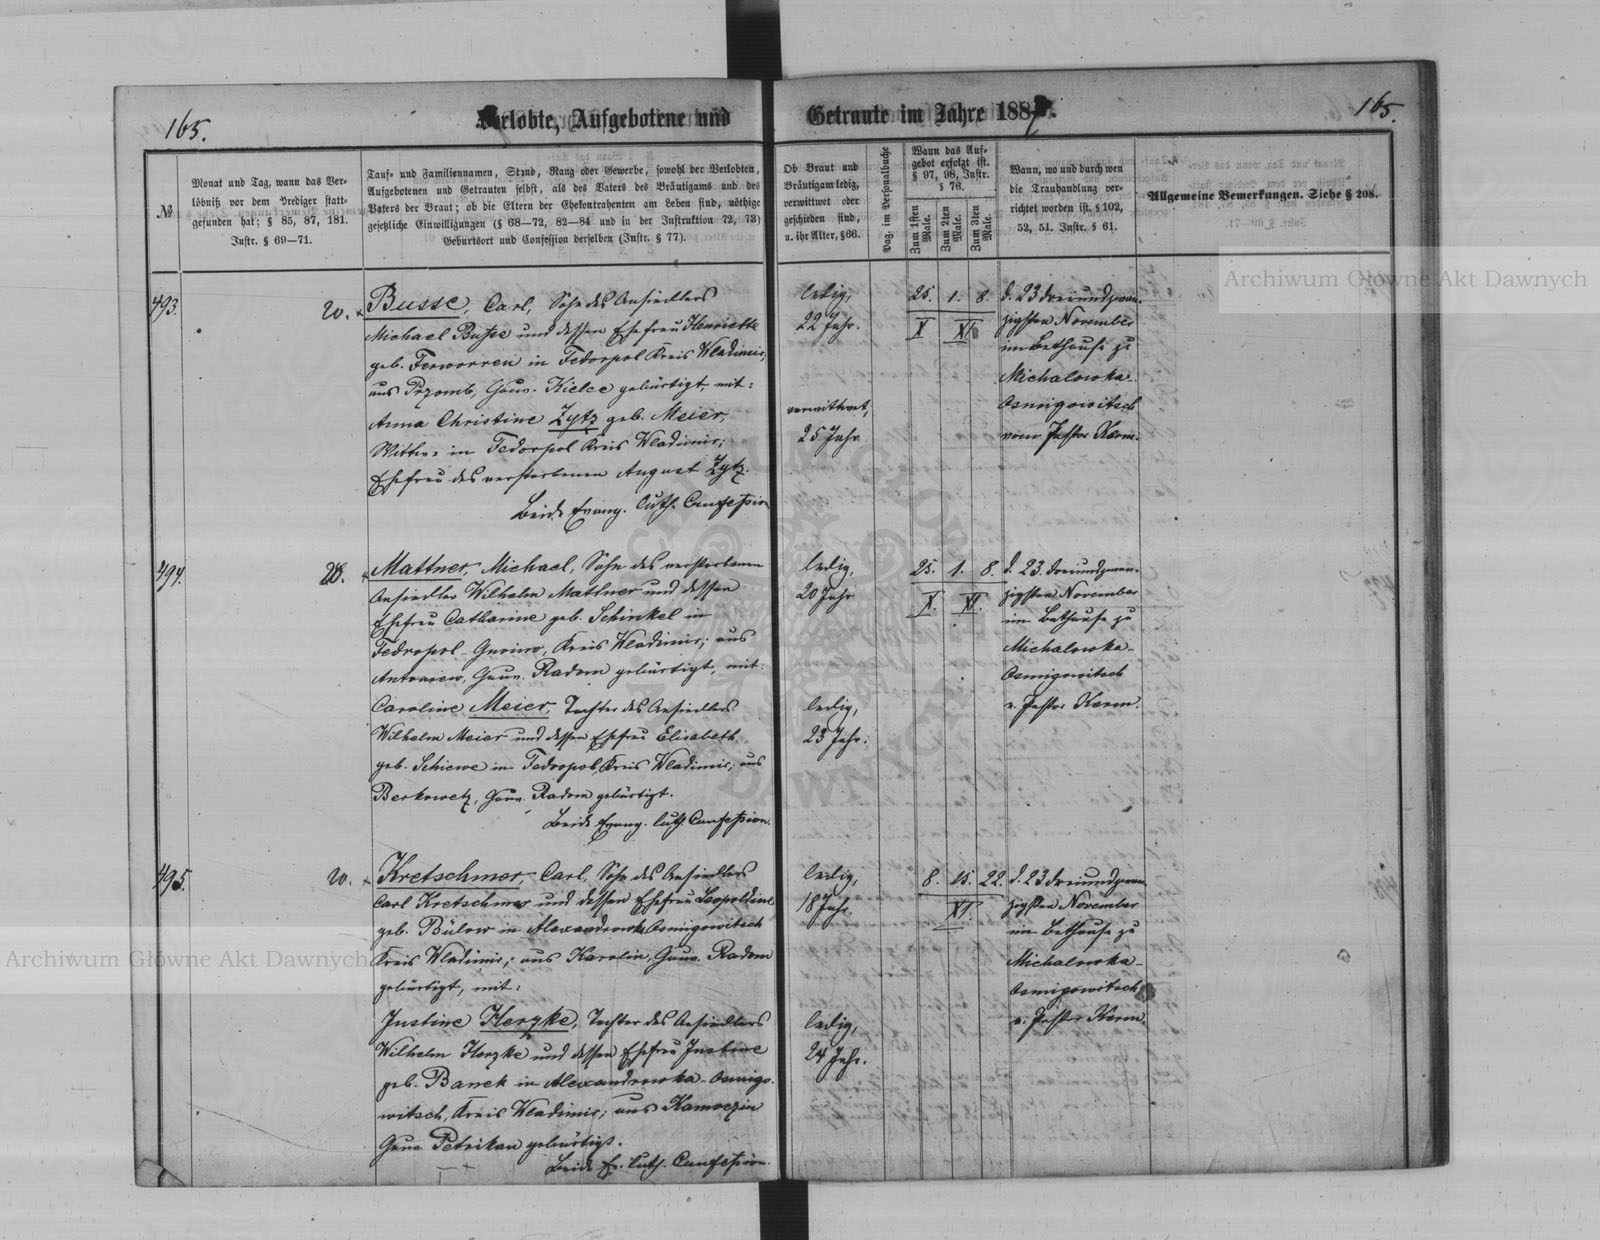 165.
Verlobte, Aufgebotene und Getraute im Jahre 1887.
165.
№
Monat und Tag, wann das Ver-
löbniß vor dem Prediger statt-
gefunden hat; § 85, 87, 181.
Instr. § 69—71.
Tauf- und Familiennamen, Stand, Rang oder Gewerbe, sowohl der Verlobten,
Aufgebotenen und Getrauten selbst, als des Vaters des Bräutigams und des
Vaters der Braut; ob die Eltern der Ehekontrahenten am Leben sind, nöthige
gesetzliche Einwilligungen (§ 68—72, 82—84 und in der Instruktion 72, 73)
Geburtsort und Confession derselben (Instr. § 77).
Ob Braut und
Bräutigam ledig,
verwittwet oder
geschieden sind,
u. ihr Alter, § 66.
Pag. im Personalbuche
Wann das Auf-
gebot erfolgt ist.
§ 97, 98, Instr.
§ 76.
Zum 1sten Male.
Zum 2ten Male.
Zum 3ten Male.
Wann, wo und durch wen
die Trauhandlung ver-
richtet worden ist. § 102,
52, 51. Instr. § 61.
Allgemeine Bemerkungen. Siehe § 208.
493.
W. × Busse, Carl, Sohn des Ansiedlers
Michael Busse und dessen Ehefrau Henriette
geb. Ferworren in Fedorpol Kreis Wladimir;
aus Przomb, Gouv. Kielce gebürtigt, mit:
Anna Christine Zytz geb. Meier,
Wittwe in Fedorpol Kreis Wladimir;
Ehefrau des verstorbenen August Zytz.
Beide Evang. luth. Confession
ledig,
22 Jahr.
verwittwet,
25 Jahr
25. 1. 8.
X XI
d. 23 dreiundzwan-
zigsten November
im Bethause zu
Michalowka-
Osmigowitsch
vom Pastor Kerm.
494.
W. × Mattner, Michael, Sohn des verstorbenen
Ansiedler Wilhelm Mattner und dessen
Ehefrau Catharine geb. Schinkel in
Fedropol-Gnoino, Kreis Wladimir; aus
Antoniew, Gouv. Radom gebürtigt, mit:
Caroline Meier, Tochter des Ansiedlers
Wilhelm Meier und dessen Ehefrau Elisabeth
geb. Schiewe in Fedropol, Kreis Wladimir; aus
Berkowetz, Gouv. Radom gebürtigt.
Beide Evang. luth. Confession.
ledig,
20 Jahr
ledig,
23 Jahr.
25. 1. 8.
X. XI.
d. 23. dreiundzwan-
zigsten November
im Bethause zu
Michalowka-
Osmigowitsch
v. Pastor Kerm.
495.
W. × Kretschmer, Carl, Sohn des Ansiedlers
Carl Kretschmer und dessen Ehefrau Leopoldine
geb. Bülow in Alexandrowka Osmigowitsch
Kreis Wladimir; aus Karolin, Gouv. Radom
gebürtigt, mit:
Justine Herzke, Tochter des Ansiedlers
Wilhelm Herzke und dessen Ehefrau Justine
geb. Banek in Alexandrowka-Osmigo-
witsch, Kreis Wladimir; aus Kamoczin
Gouv. Petrikau gebürtigt.
Beide Ev. luth. Confession.
ledig,
18 Jahr.
ledig,
24 Jahr.
8. 15. 22.
XI.
d. 23 dreiundzwan-
zigsten November
im Bethause zu
Michalowka-
Osmigowitsch
v. Pastor Kerm.
Archiwum Główne Akt Dawnych
Archiwum Główne Akt Dawnych